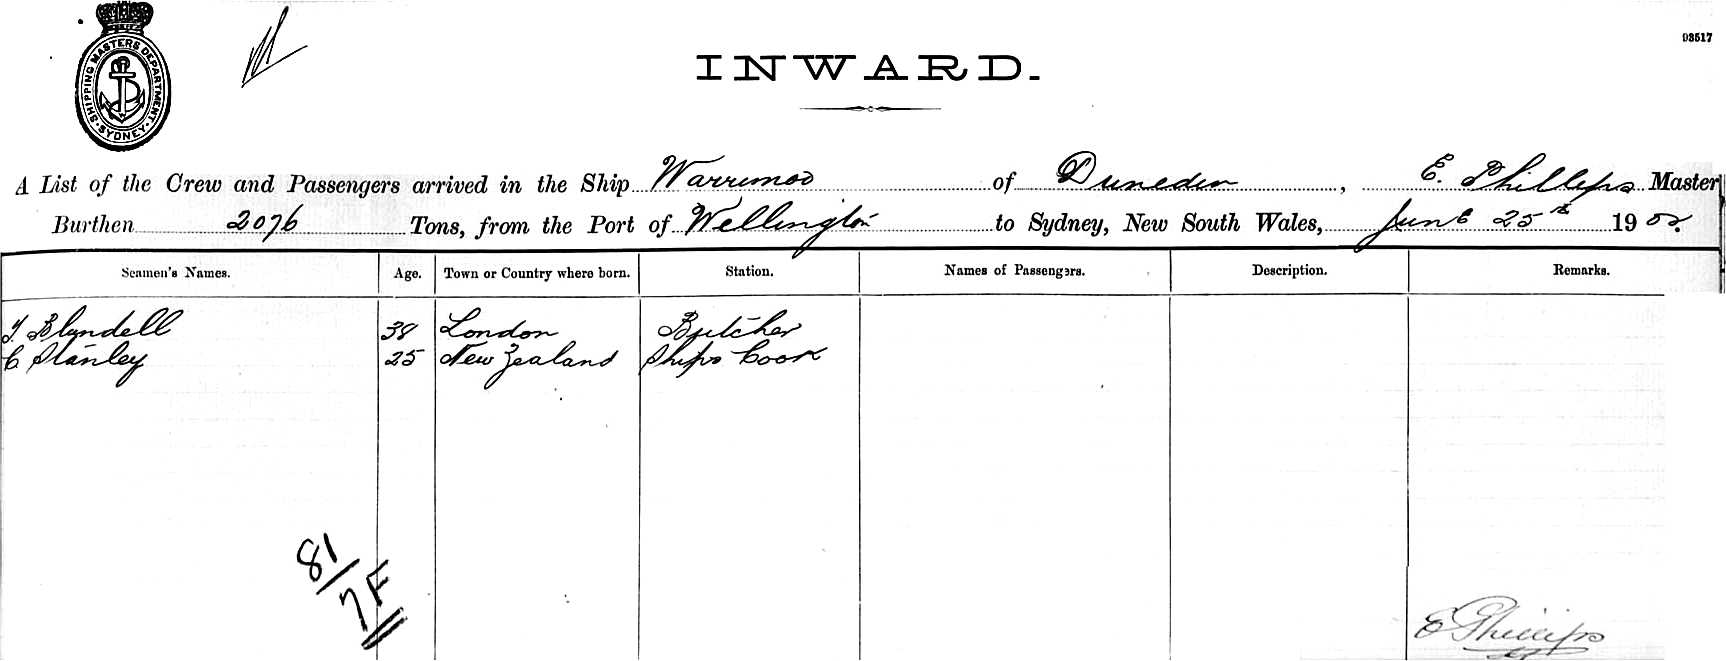 93517
SHIPPING MASTERS DEPARTMENT.
SYDNEY
INWARD.
A List of the Crew and Passengers arrived in the Ship Warrimoo of Dunedin, E. Phillips Master
Burthen 2076 Tons, from the Port of Wellington to Sydney, New South Wales, June 25th 1902.
Seamen's Names. Age. Town or Country where born. Station. Names of Passengers. Description. Remarks.
Blundell 38 London Butcher
C Stanley 25 New Zealand Ships Cook
81
7F
E Phillips